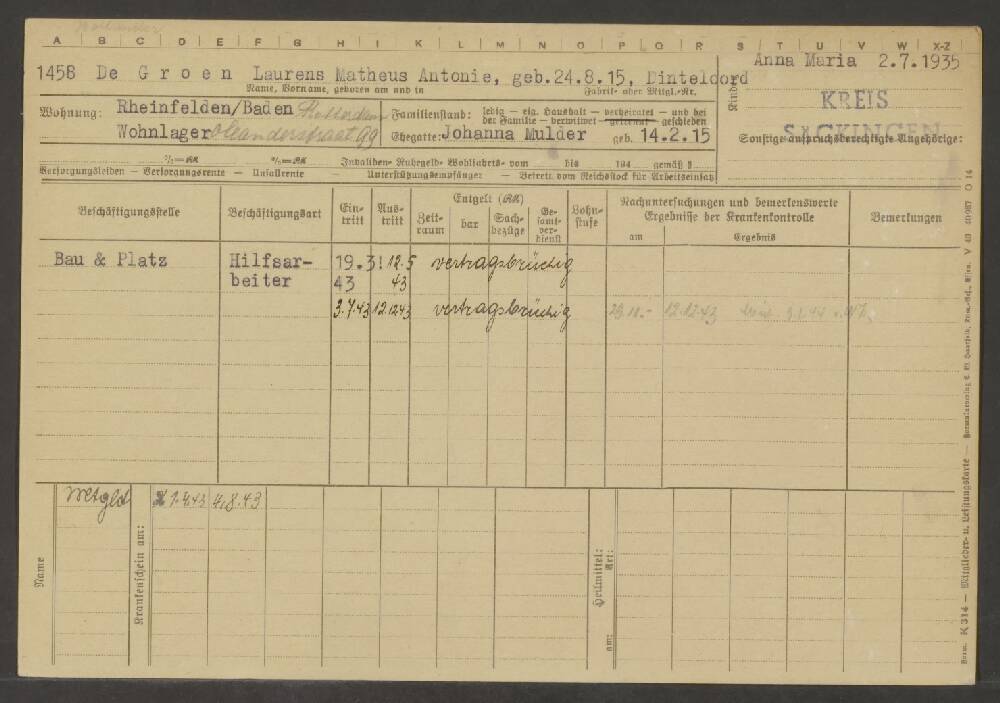 Holländer
A B C D E F G H I K L M N O P Q R S T U V W X-Z
1458 De Groen Laurens Matheus Antonie, geb.24.8.15, Dinteloord
Name, Vorname, geboren am und in
Fabrik- oder Mitgl.-Nr.
Kinder
Anna Maria 2.7.1935
KREIS
SÄCKINGEN
Sonstige anspruchsberechtigte Angehörige:
Wohnung: Rheinfelden/Baden Rotterdam
Wohnlager Oleanderstraat 99
Familienstand: ledig — eig. Haushalt — verheiratet — und bei
der Familie — verwitwet — getrennt — geschieden
Ehegatte: Johanna Mulder geb. 14.2.15
%=RM %=RM Invaliden- Ruhegeld- Wohlfahrts- vom bis 194 gemäß §
Versorgungsleiden — Versorgungsrente — Unfallrente — Unterstützungsempfänger — Betreut vom Reichsstock für Arbeitseinsatz
Beschäftigungsstelle
Beschäftigungsart
Ein-
tritt
Aus-
tritt
Entgelt (RM)
Zeit-
raum
bar
Sach-
bezüge
Ge-
samt-
ver-
dienst
Lohn-
stufe
Nachuntersuchungen und bemerkenswerte
Ergebnisse der Krankenkontrolle
am
Ergebnis
Bemerkungen
Bau & Platz Hilfsar- 19.3! 12.5 vertragsbrüchig
beiter 43 43
3.7.43 12.12.43 vertragsbrüchig 29.11.- 12.12.43
Name
Mtgld
Krankenschein am:
1.4.43 4.8.43
Heilmittel:
Art:
am:
Form. K 314 — Mitglieder- u. Leistungskarte —